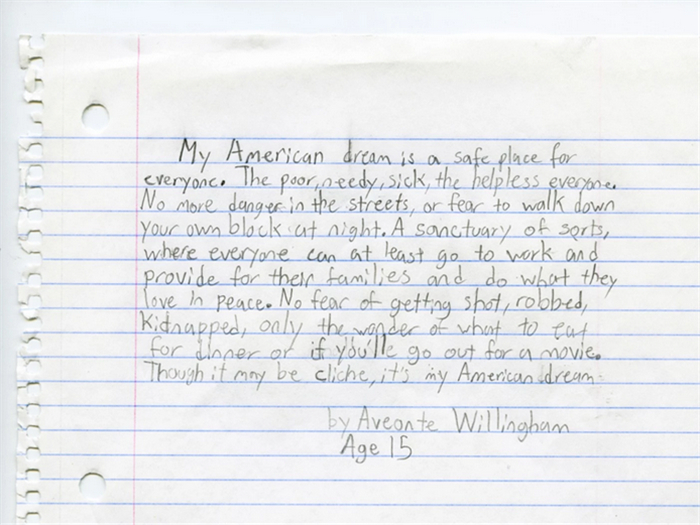 My American dream is a safe place for
everyone. The poor, needy, sick, the helpless everyone.
No more danger in the streets, or fear to walk down
your own block at night. A sanctuary of sorts,
where everyone can at least go to work and
provide for their families and do what they
love in peace. No fear of getting shot, robbed,
kidnapped, only the wonder of what to eat
for dinner or if you'lle go out for a movie.
Though it may be cliche, it's my American dream
by Aveonte Willingham
Age 15